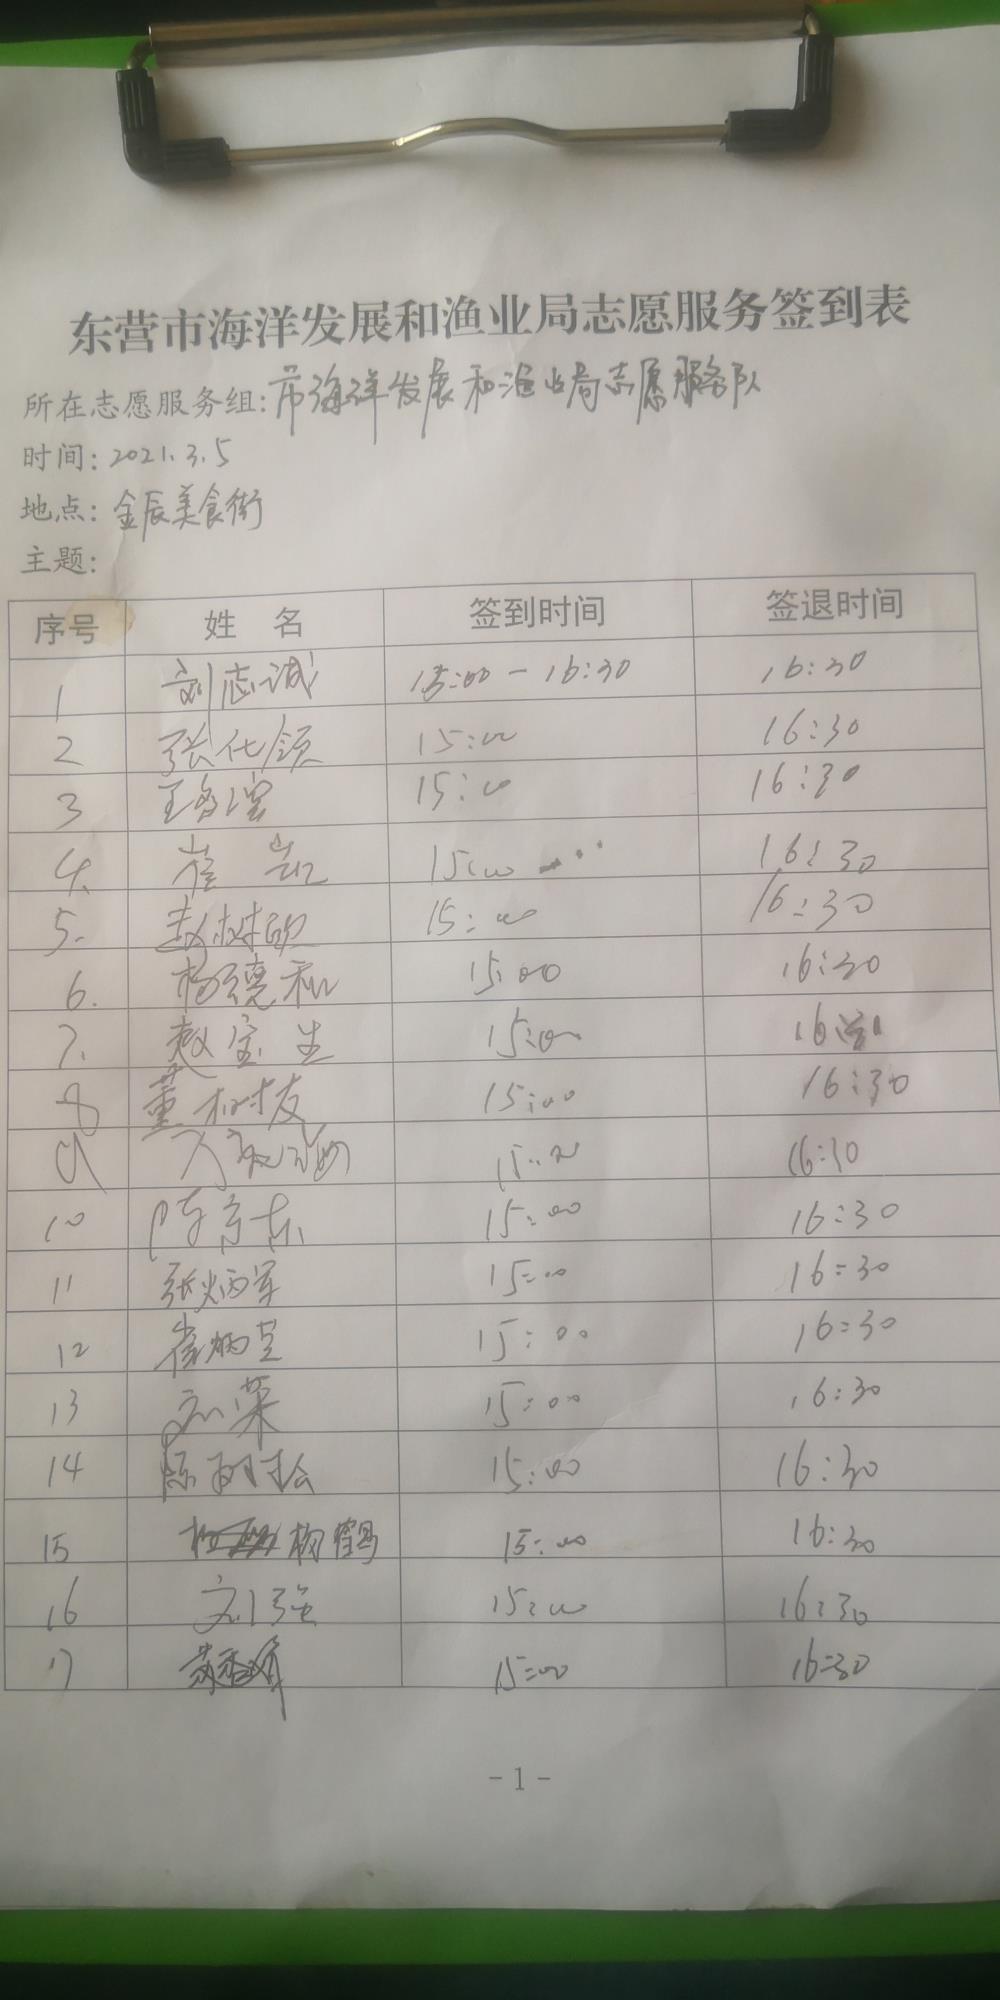 东营市海洋发展和渔业局志愿服务签到表
所在志愿服务组:市海洋发展和渔业局志愿服务队
时间:2021.3.5
地点:金辰美食街
主题:
序号 姓 名 签到时间 签退时间
1 刘志诚 15:00-16:30 16:30
2 张化领 15:00 16:30
3 15:00 16:30
4. 崔 凯 15:00 16:30
5. 15:00 16:30
6. 杨德和 15:00 16:30
7. 赵宝生 15:00 16
8 董树友 15:00 16:30
9 15:00 16:30
10 陈京东 15:00 16:30
11 张炳军 15:00 16:30
12 崔炳 15:00 16:30
13 刘荣 15:00 16:30
14 陈树会 15:00 16:30
15 杨鹤 15:00 16:30
16 刘强 15:00 16:30
17 15:00 16:30
- 1 -